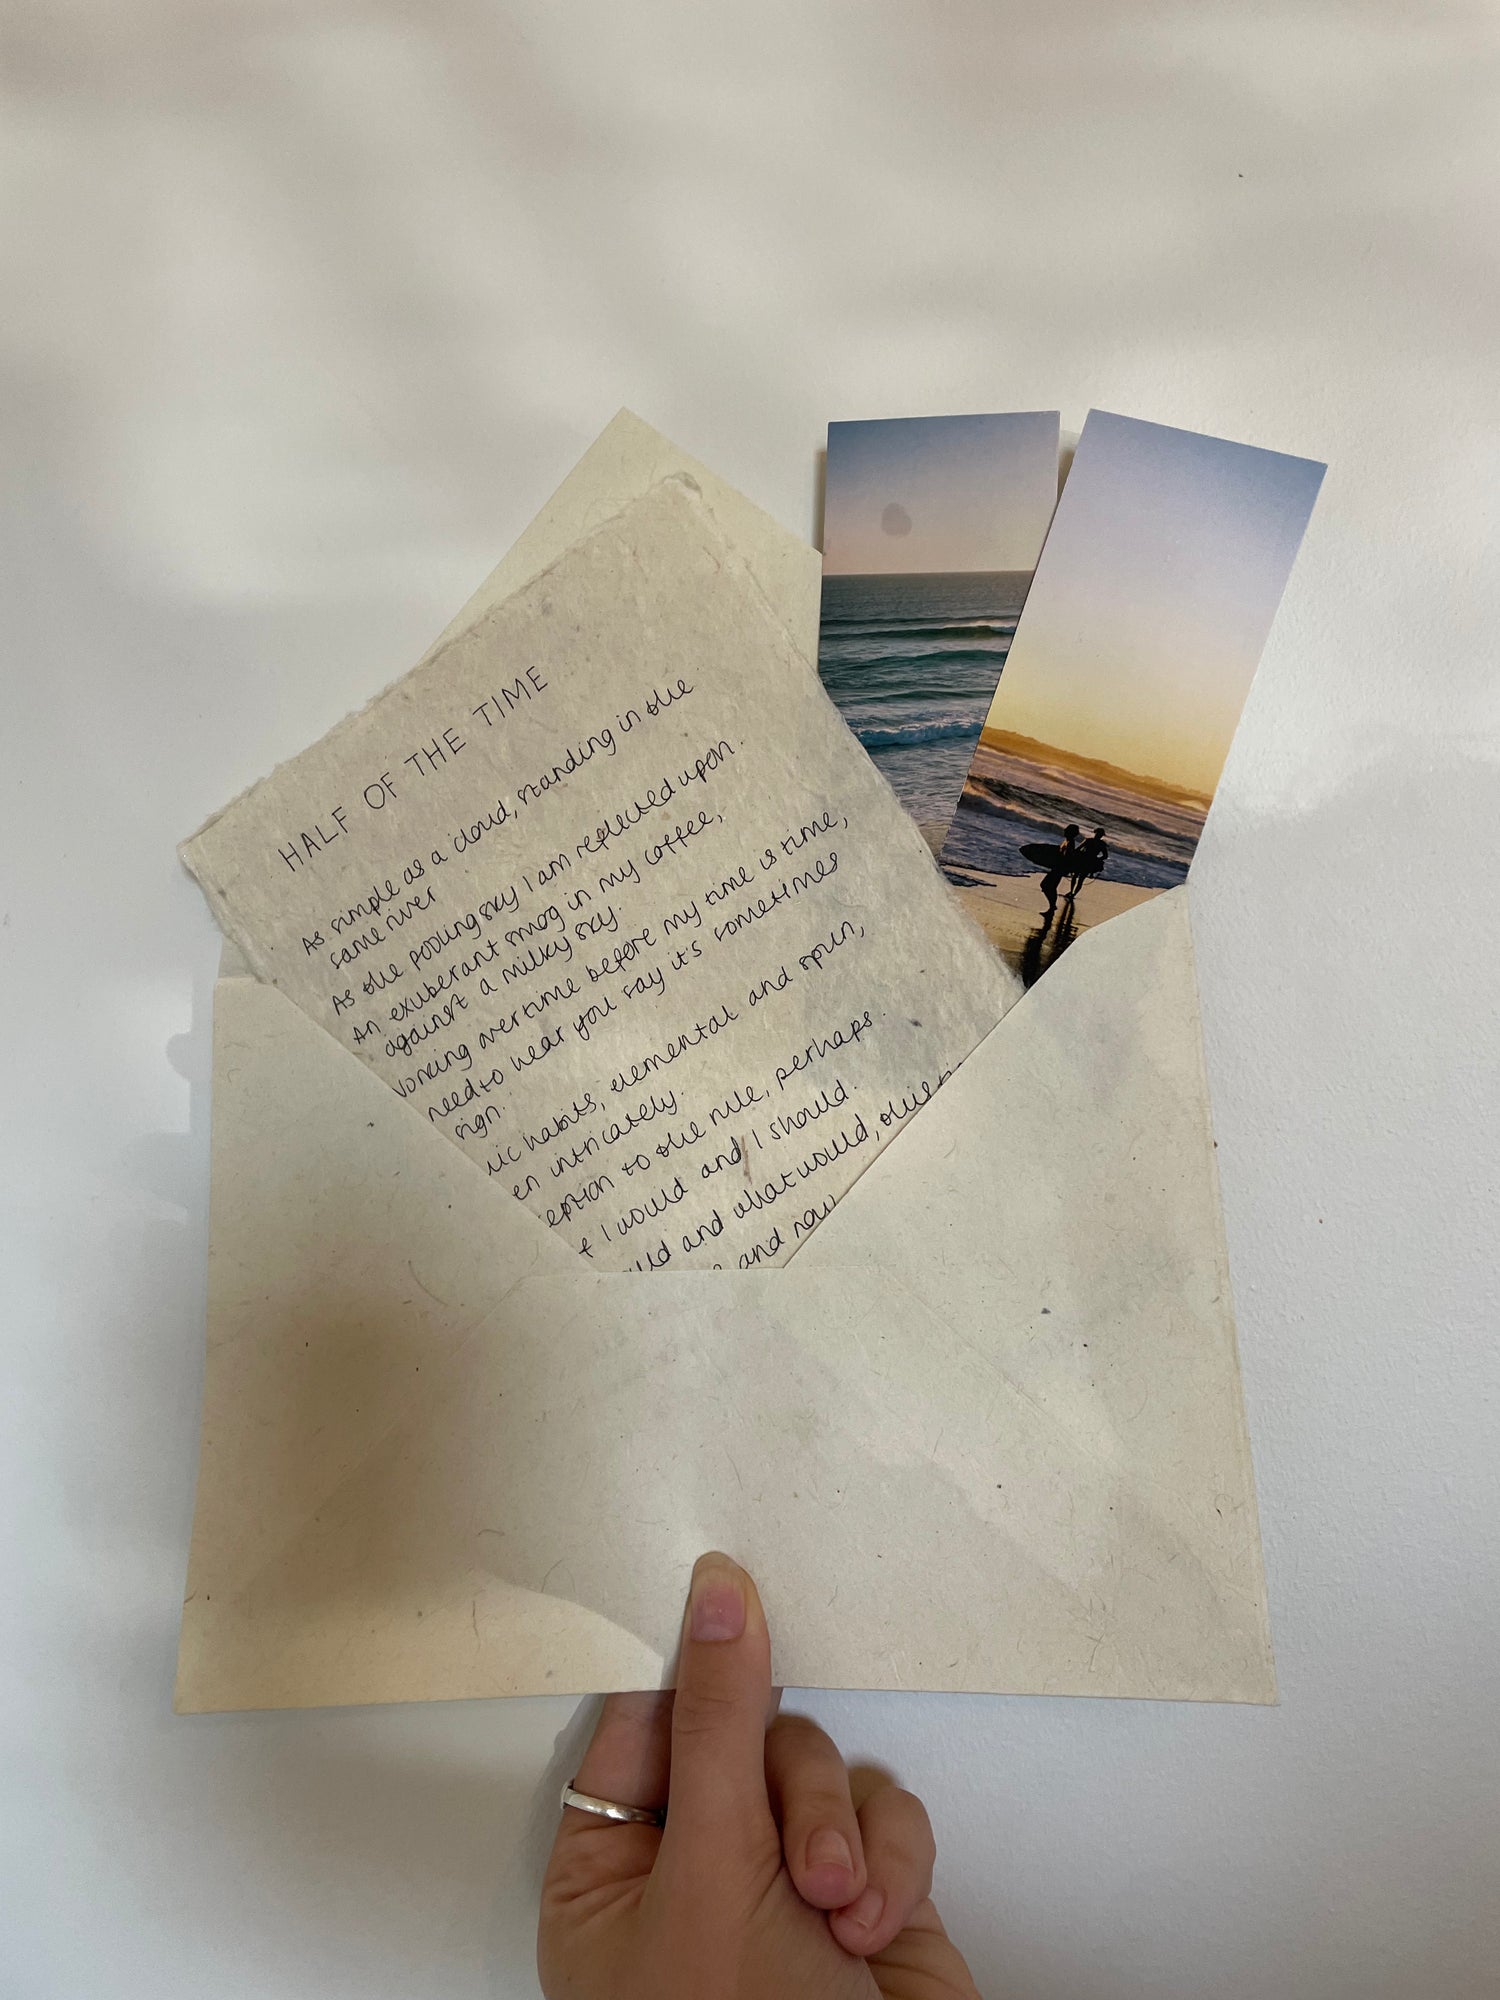 HALF OF THE TIME
As simple as a cloud, standing in the
same river
As the pooling sky I am reflected upon.
An exuberant smog in my coffee,
against a milky sky.
Working overtime before my time is time,
need to hear you say it's sometimes
sign.
habits, elemental and spun,
intricately.
to the rule, perhaps.
I would and I should.
and what would,
and now